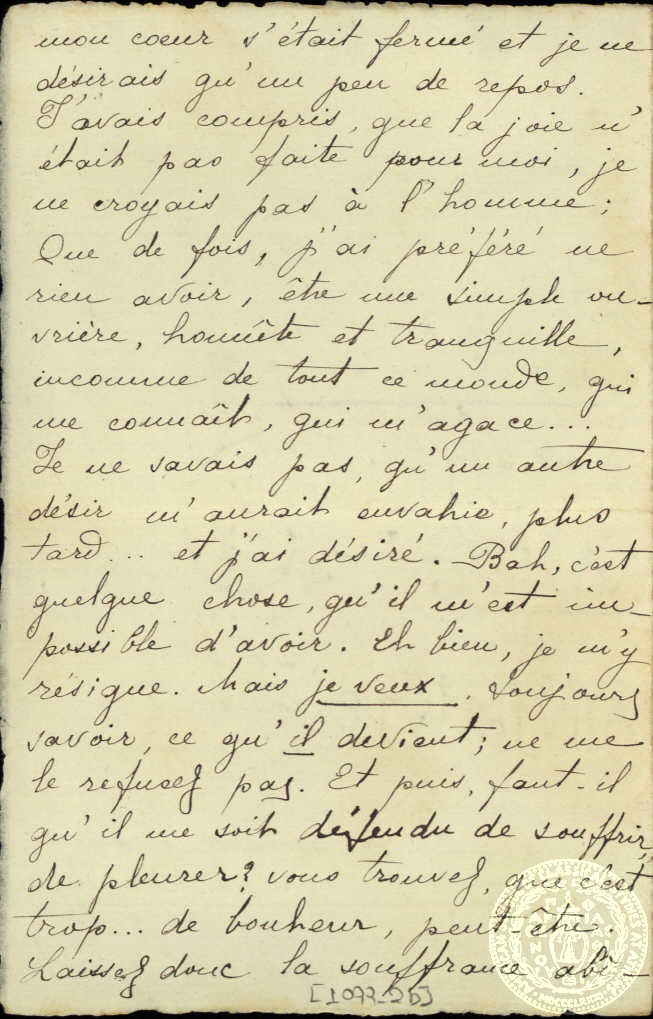 mon coeur s'était fermé et je ne
désirais qu'un peu de repos.
J'avais compris, que la joie n'
était pas faite pour moi, je
ne croyais pas à l'homme;
Que de fois, j'ai préféré ne
rien avoir, être une simple ou-
vrière, honnête et tranquille,
inconnue de tout ce monde, qui
me connaît, qui m'agace...
Je ne savais pas, qu'un autre
désir m'aurait envahie, plus
tard... et j'ai désiré. Bah, c'est
quelque chose, qu'il m'est im-
possible d'avoir. Eh bien, je m'y
résigne. Mais je veux, toujours
savoir, ce qu'il devient; ne me
le refusez pas. Et puis, faut-il
qu'il me soit défendu de souffrir,
de pleurer? vous trouvez, que c'est
trop... de bonheur, peut-être.
Laissez donc la souffrance abî-
[1077-2b]